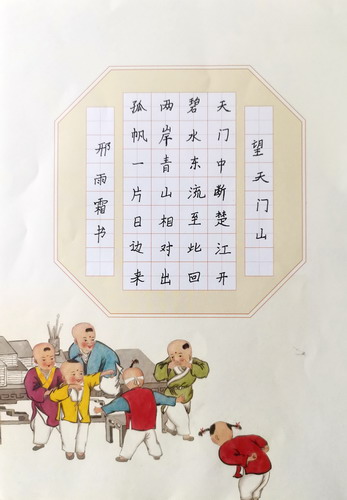 望天门山
天门中断楚江开
碧水东流至此回
两岸青山相对出
孤帆一片日边来
邢雨霜书